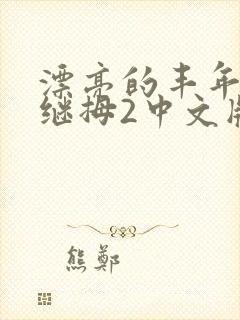 漂亮的丰年
继拇2中文版
熊鄭